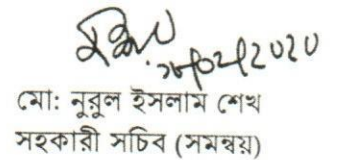 মো: নুরুল ইসলাম শেখ
সহকারী সচিব (সমন্বয়)